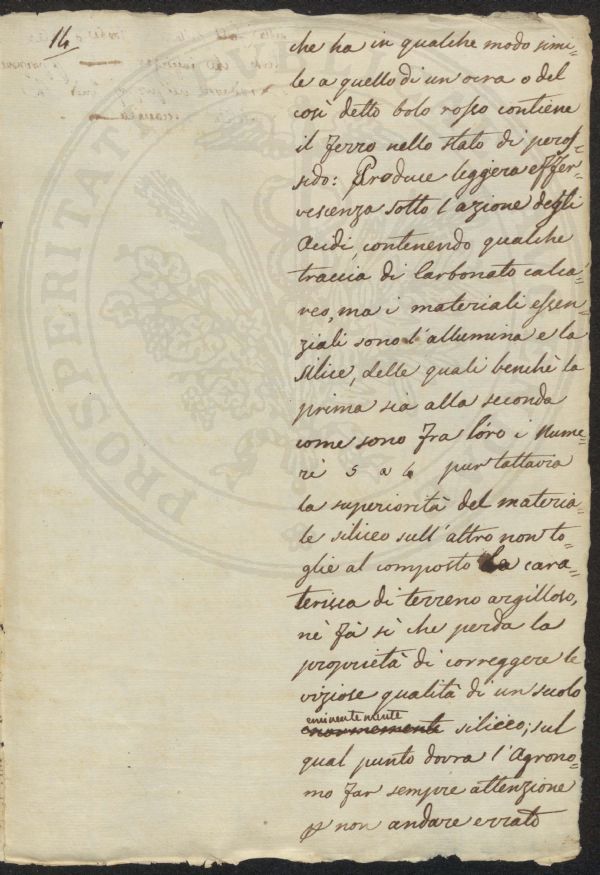 14
che ha in qualche modo simi=
le a quello di un'ocra o del
così detto bolo rosso contiene
il ferro nello stato di peros=
sido: Produce leggera effer=
vescenza sotto l'azione degli
Acidi, contenendo qualche
traccia di Carbonato calca=
reo, ma i materiali essen=
ziali sono l'allumina e la
silice, delle quali benchè la
prima sia alla seconda
come sono fra loro i Nume=
ri 5 a 6 pur tattavia
la superiorità del materia=
le siliceo sull'altro non to=
glie al composto la cara=
terisca di terreno argilloso,
nè fà sì che perda la
proprietà di correggere le
viziose qualità di un suolo
eminentemente
enormemente siliceo; sul
qual punto dovra l'Agrono=
mo far sempre attenzione
p non andare errato
PROSPERITATI